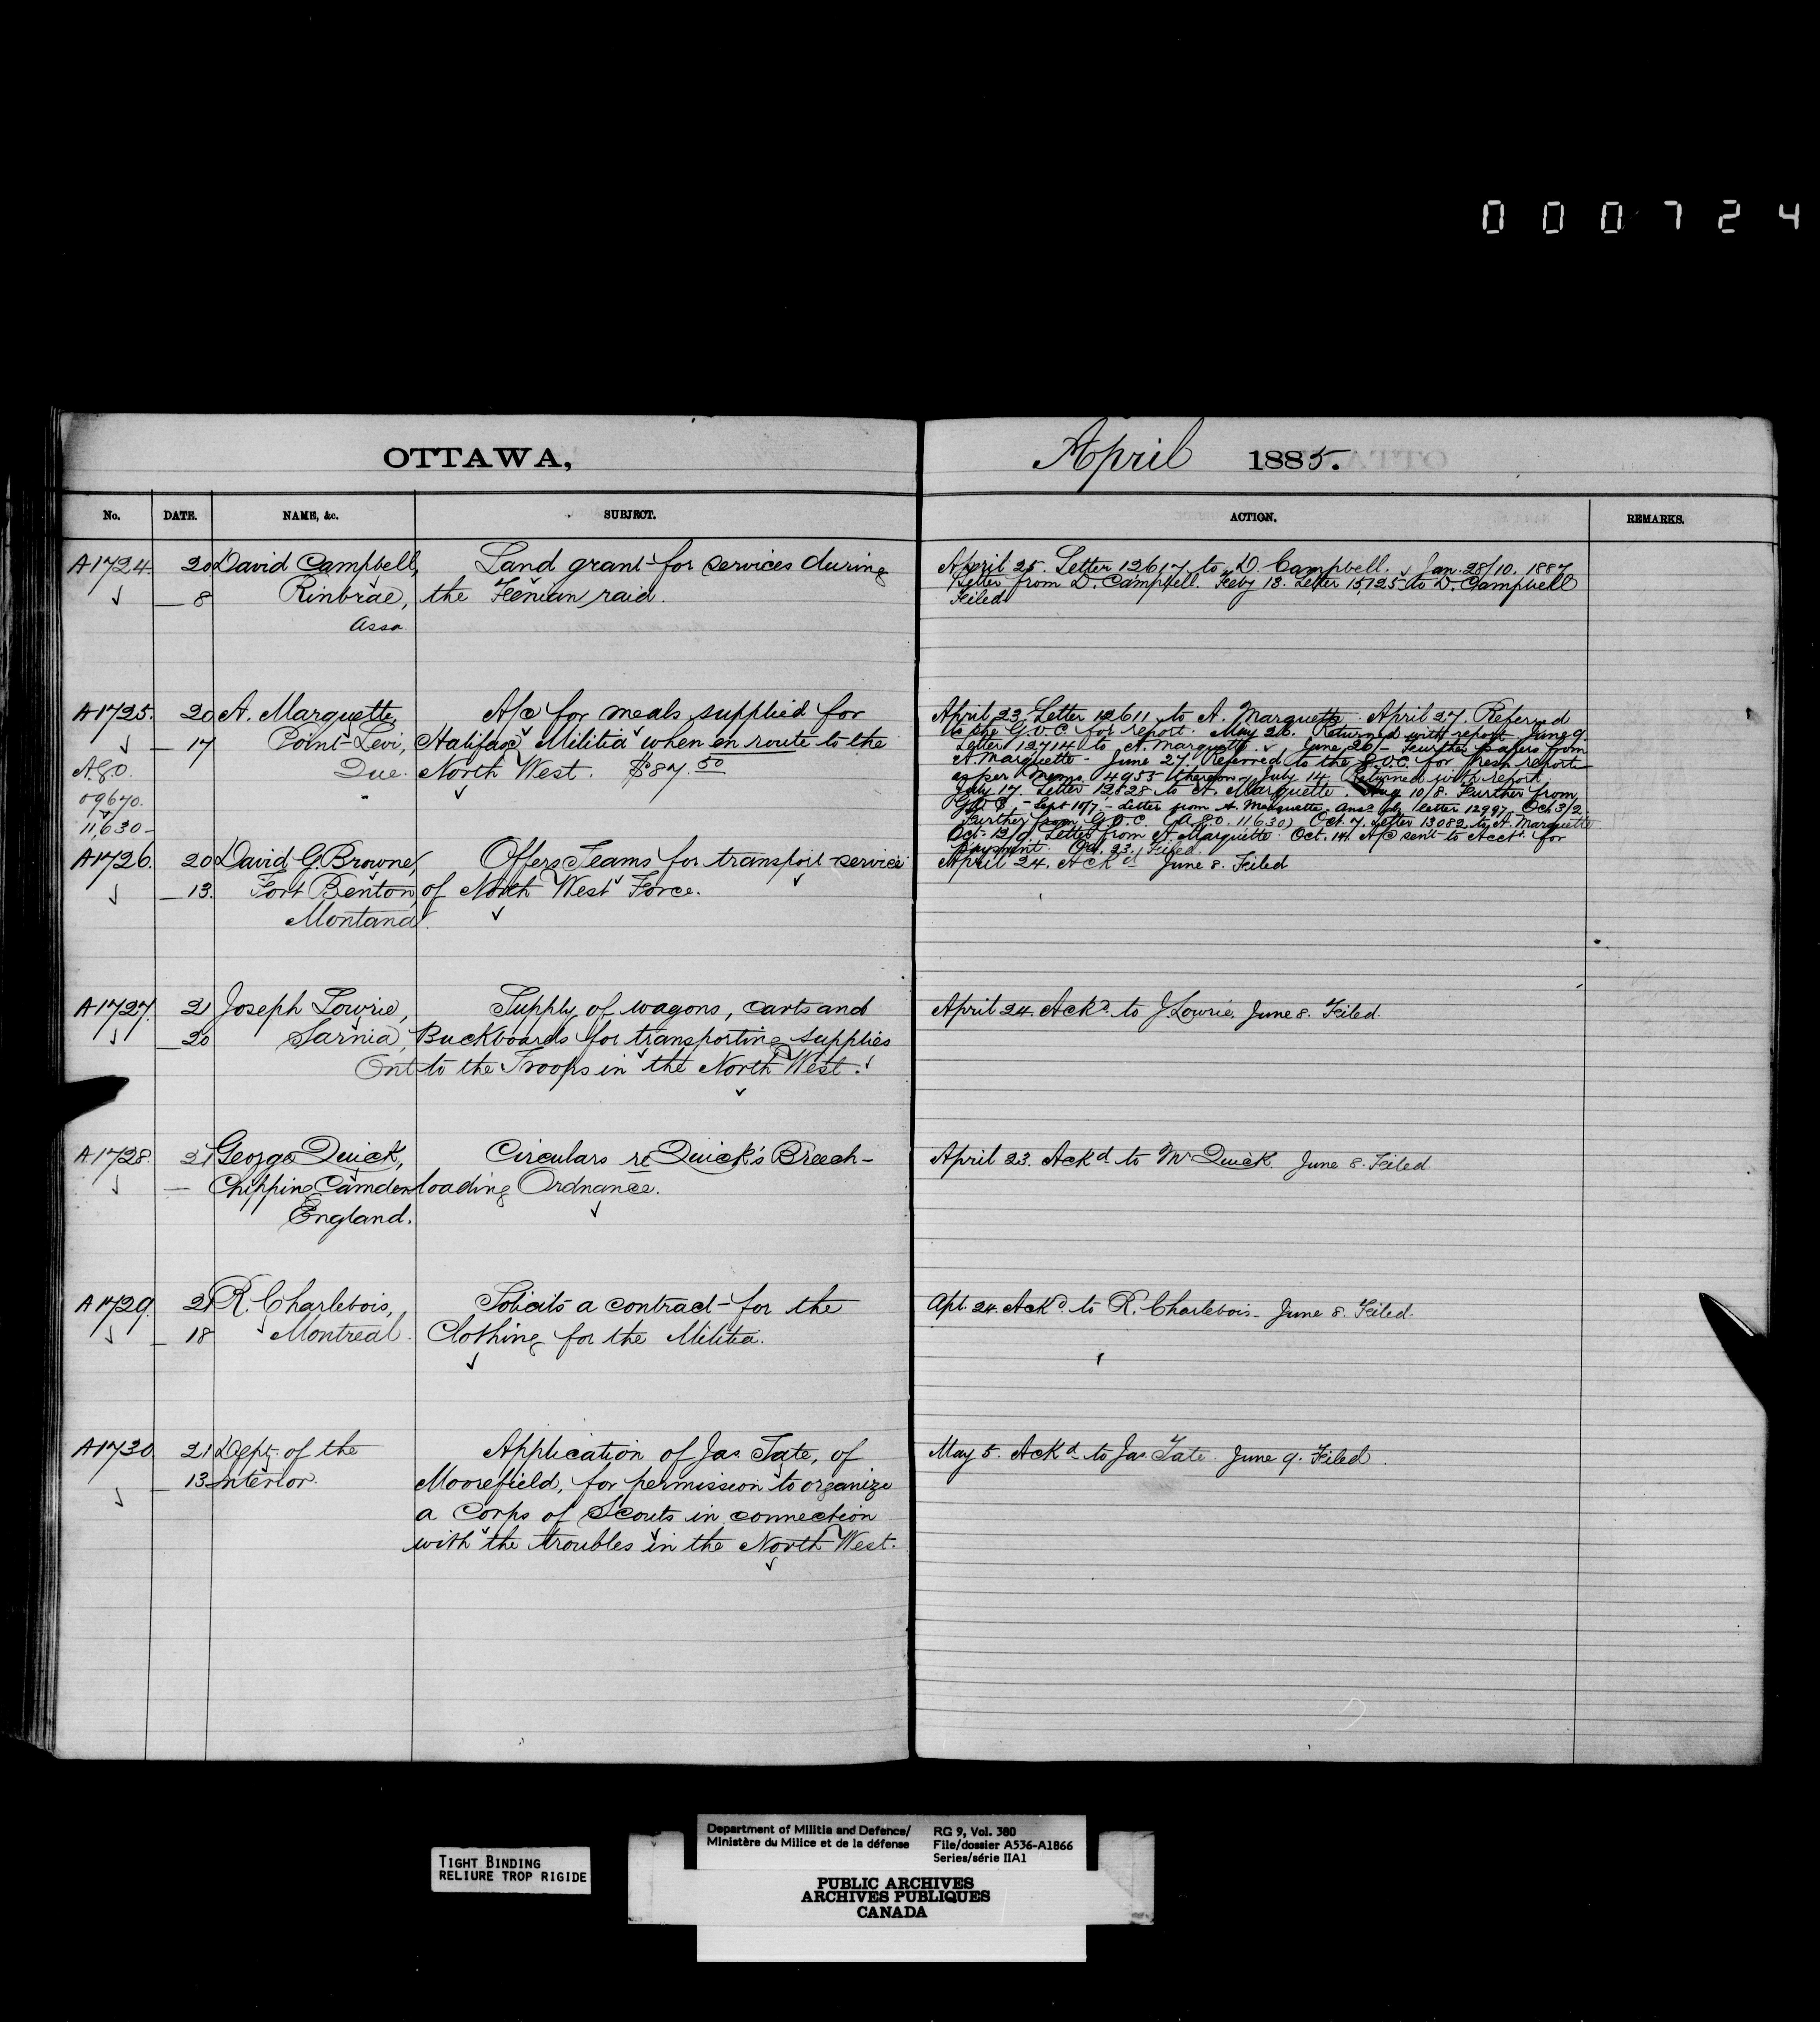 000724
OTTAWA,
April 1885.
No. DATE. NAME, &c. SUBJECT. ACTION. REMARKS.
A1724 20 David Campbell, Land grant for services during
8 Kinbrae, the Fenian raid.
Assa
April 25. Letter 12617 to D. Campbell. Jan. 28/10. 1887
Letter from D. Campbell. Feby 13. Letter 15,125 to D. Campbell
Filed
A1725. 20 A. Marquette, A/c for meals supplied for
17 Point-Levi, Halifax Militia when en route to the
A.G.O. Que. North West. $87.50
09670.
11,630
April 23. Letter 12611 to A. Marquette. April 27. Referred
to the G.O.C. for report. May 26. Returned with report June 9.
Letter 12714 to A. Marquette. June 26/- Further papers from
A. Marquette - June 27. Referred to the G.O.C. for fresh report
as per memo. 4955 thereon. July 14. Returned with report.
July 17. Letter 12828 to A. Marquette. Aug 10/8. Further from
G.O.C. - Sept 10/7 - Letter from A. Marquette. Ansd by letter 12997. Oct 3/2
Further from G.O.C. (A.G.O. 11630) Oct. 7. Letter 13082 to A. Marquette
Oct. 13/9. Letter from A. Marquette. Oct. 14. A/c sent to Acct. for
payment. Oct. 23. Filed.
A1726. 20 David G. Browne, Offers Teams for transport service
13. Fort Benton, of North West Force.
Montana.
April 24. Ackd June 8. Filed
A1727. 21 Joseph Lowrie, Supply of wagons, carts and
20 Sarnia, Buckboards for transporting supplies
Ont to the Troops in the North West.
April 24. Ackd. to J. Lowrie. June 8. Filed.
A1728. 21 George Quick, Circulars re Quick's Breech-
— Chipping Camden loading Ordnance.
England.
April 23. Ackd to Mr Quick. June 8. Filed
A1729. 21 R. Charlebois, Solicits a contract for the
18 Montreal. Clothing for the Militia.
Apl. 24. Ackd. to R. Charlebois - June 8. Filed.
A1730 21 Dept. of the Application of Jas. Tate, of
13 Interior. Moorefield, for permission to organize
a Corps of Scouts in connection
with the troubles in the North West.
May 5. Ackd to Jas. Tate. June 9. Filed.
TIGHT BINDING
RELIURE TROP RIGIDE
Department of Militia and Defence/
Ministère du Milice et de la défense
RG 9, Vol. 380
File/dossier A536-A1866
Series/série IIA1
PUBLIC ARCHIVES
ARCHIVES PUBLIQUES
CANADA